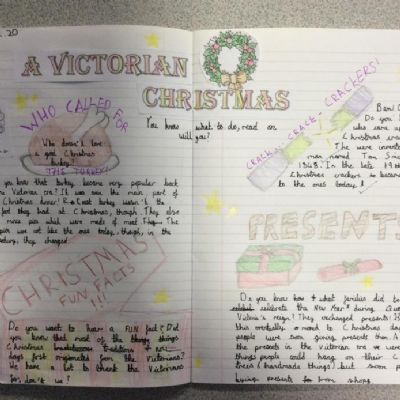 . 20
A VICTORIAN
CHRISTMAS
WHO CALLED FOR
Who doesn't love
a good Christmas
turkey?
THIS TURKEY?
You know what to do, read on,
will you?
you know that turkey became very popular back
the Victorian era? It was soon the main part of
Christmas dinner! Roast turkey wasn't the
food they had at Christmas, though. They also
mince pies which were made of meat. These
pies were not like the ones today, though, in the
century, they changed.
CHRISTMAS
FUN FACTS
!!!
Do you want to hear a FUN fact? Did
you know that most of the things
Christmas traditions
days first originated from the Victorians?
We have a lot to thank the Victorians
for don't we?
CRACK, CRACK, CRACKERS!
Do you
who came up
Christmas
The were invented
man named Tom
1848. In the late 19
Christmas crackers
to the ones today.
PRESENTS
Do you know how what families did to
celebrate the New Year during
Victoria's reign? They exchanged presents!
this carefully moved to Christmas day
people were even giving presents then
the presents in the Victorian era were
things people could hang on their
trees (handmade things) but soon
buying presents from shops